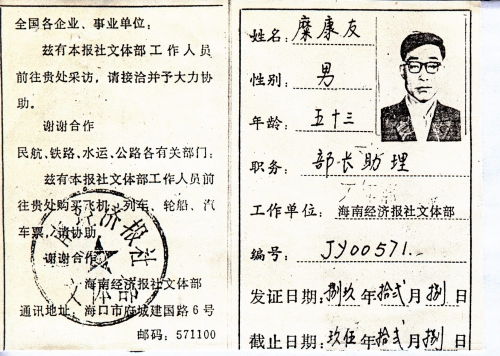 全国各企业、事业单位:
兹有本报社文体部工作人员
前往贵处采访，请接洽并予大力协
助。
谢谢合作
民航、铁路、水运、公路各有关部门:
兹有本报社文体部工作人员前
往贵处购买飞机、列车、轮船、汽
车票，请协助。
谢谢合作
海南经济报社文体部
通讯地址: 海口市府城建国路6号
邮码: 571100
南经济报社
文体部
姓名: 糜康友
性别: 男
年龄: 五十三
职务: 部长助理
工作单位: 海南经济报社文体部
编号: JY00571
发证日期: 捌玖年拾贰月捌日
截止日期: 玖伍年拾贰月捌日